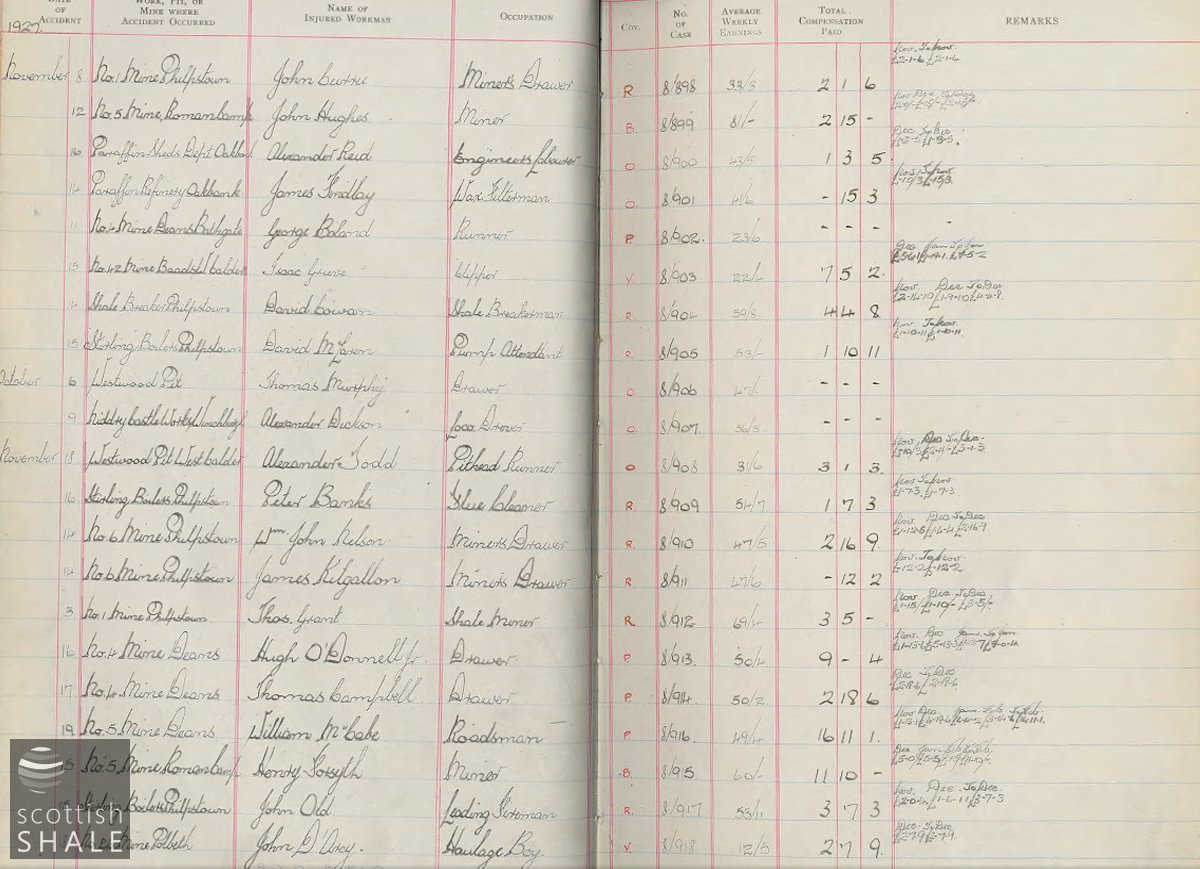 DATE OF ACCIDENT WORK, PIT, OR MINE WHERE ACCIDENT OCCURRED NAME OF INJURED WORKMAN OCCUPATION COY. No. OF CASE AVERAGE WEEKLY EARNINGS TOTAL COMPENSATION PAID REMARKS
1927.
November 8 No. 1 Mine Philpstown John Currie Miner's Drawer R 8/898 33/3 2 1 6 Nov. To Nov. £2-1-6 £2-1-6
12 No. 5 Mine, Romanbank John Hughes Miner B. 8/899 81/- 2 15 -
16 Paraffin Sheds Dept Oakbank Alexander Reid Engineers Labourer O. 8/900 43/5 1 3 5
14 Paraffin Refinery Oakbank James Findlay Wax Filterman O. 8/901 41/6 - 15 3 Nov. To Nov. £-15/3 £-15/3
11 No. 4 Mine Deans Bathgate George Boland Runner P. 8/902. 23/6 - - -
15 No. 42 Mine Baads W. Calder Isaac Grieve Clipper Y. 8/903 22/4 7 5 2. Dec Jan To Jan
14 Shale Breaker Philpstown David Cowan Shale Breakerman R. 8/904 59/8 4 4 8 Nov. Dec To Dec £2-14-10 £1-9-10 £4-4-8.
15 Stirling Boilers Philpstown David McLaren Pump Attendant R. 8/905 53/- 1 10 11 Nov. To Nov. £1-10-11 £1-10-11
October 6 Westwood Pit Thomas Murphy Drawer O. 8/906 47/- - - -
9 Niddry Castle Works Winchburgh Alexander Dickson Loco Driver O. 8/907. 56/5 - - -
November 18 Westwood Pit West Calder Alexander Todd Pithead Runner O 8/908 31/6 3 1 3. Nov. Dec To Dec.
16 Stirling Boilers Philpstown Peter Banks Flue Cleaner R. 8/909 54/7 1 7 3 Nov To Nov. £1-7-3. £1-7-3
14 No. 6 Mine Philpstown Wm John Nelson Miner's Drawer R. 8/910 47/5 2 16 9. Nov. Dec To Dec
14 No. 6 Mine Philpstown James Kilgallon Miners Drawer R. 8/911 47/6 - 12 2 Nov. To Nov. £-12-2 £-12-2
3 No. 1 Mine Philpstown Thos. Grant Shale Miner R. 8/912 69/4 3 5 - Nov. Dec To Dec £1-15/- £1-10/- £3-5/-
16 No. 4 Mine Deans Hugh O'Donnell Jr. Drawer P. 8/913. 50/4 9 - 4 Nov. Dec Jan. To Jan.
17. No. 4 Mine Deans Thomas Campbell Drawer P. 8/914. 50/2 2 18 6 Dec To Dec £2-18-6 £2-18-6
19 No. 5 Mine Deans William McCabe Roadsman P. 8/916 49/4 16 11 1.
15 No. 5 Mine Romancamp Henry Forsyth Miner B. 8/915 60/- 11 10 -
15 Stirling Boilers Philpstown John Old Leading Fireman R. 8/917 53/11 3 7 3 Nov. Dec. To Dec. £2-0-4 £1-6-11 £3-7-3
Mine Polbeth John D'Arcy. Haulage Boy. Y. 8/918 12/5 2 7 9. Dec To Dec £2-7-9 £2-7-9.
scottish
SHALE